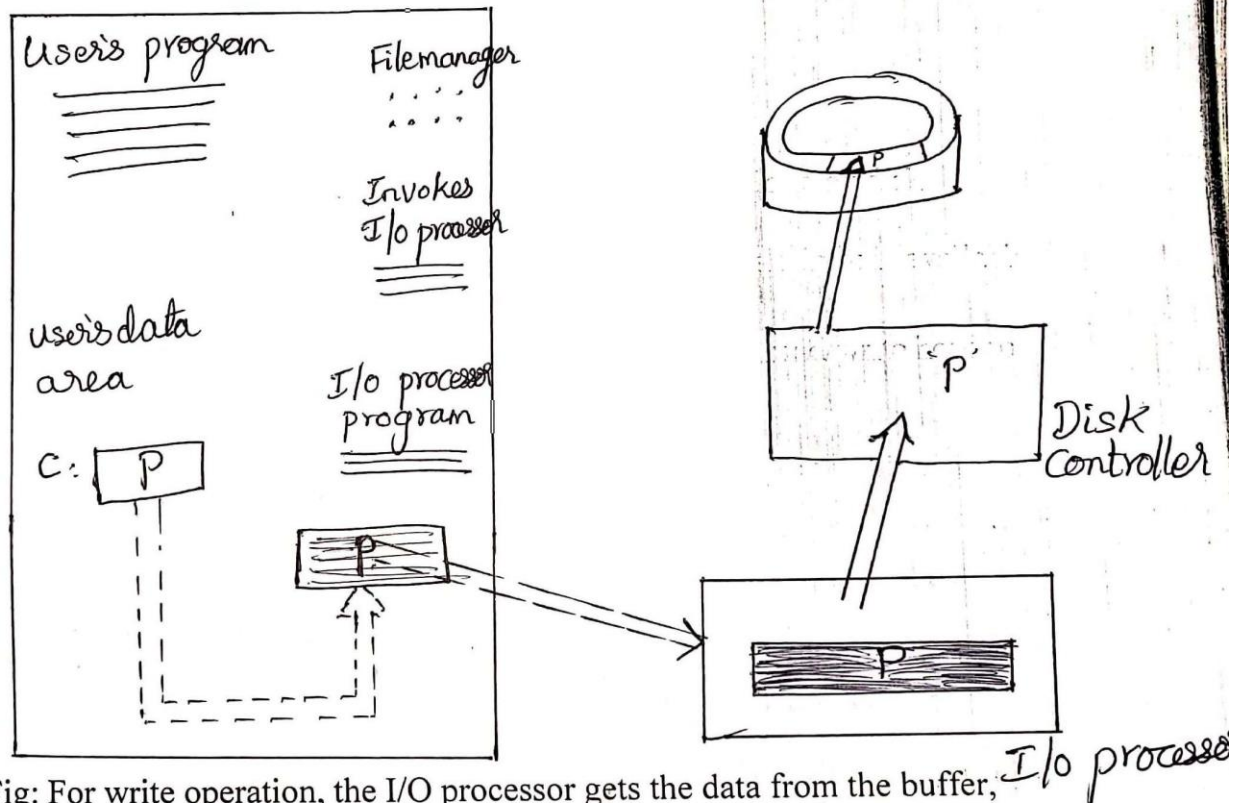 User's program
Filemanager
Invokes
I/o processor
user's data
area
I/o processor
program
C: P
P
P
'P'
Disk
Controller
P
I/o processo
Fig: For write operation, the I/O processor gets the data from the buffer,